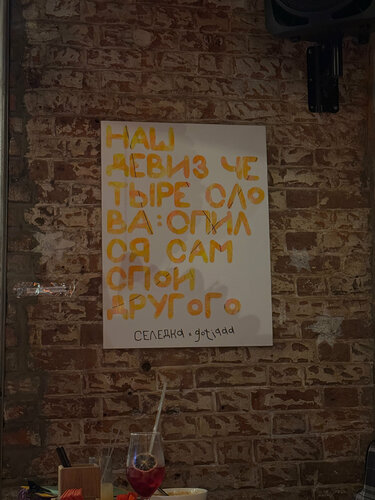 НАШ
ДЕВИЗ ЧЕ
ТЫРЕ СЛО
ВА:ОПИЛ
СЯ САМ
СПОИ
ДРУГОГО
СЕЛЕДКА • gotjaaa